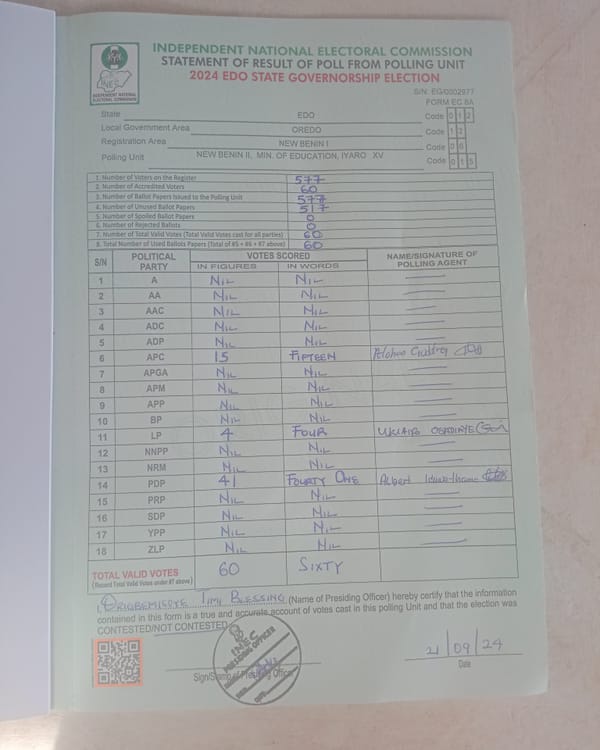 INDEPENDENT NATIONAL ELECTORAL COMMISSION
STATEMENT OF RESULT OF POLL FROM POLLING UNIT
2024 EDO STATE GOVERNORSHIP ELECTION
INEC
INDEPENDENT NATIONAL
ELECTORAL COMMISSION
S/N: EG/0002977
FORM EC 8A
State EDO Code 0 1 2
Local Government Area OREDO Code 1 2
Registration Area NEW BENIN I Code 0 6
Polling Unit NEW BENIN II, MIN. OF EDUCATION, IYARO XV Code 0 1 5
1. Number of Voters on the Register 577
2. Number of Accredited Voters 60
3. Number of Ballot Papers Issued to the Polling Unit 577
4. Number of Unused Ballot Papers 517
5. Number of Spoiled Ballot Papers 0
6. Number of Rejected Ballots 0
7. Number of Total Valid Votes (Total Valid Votes cast for all parties) 60
8. Total Number of Used Ballots Papers (Total of #5 + #6 + #7 above) 60
S/N POLITICAL PARTY VOTES SCORED NAME/SIGNATURE OF POLLING AGENT
IN FIGURES IN WORDS
1 A NIL NIL
2 AA NIL NIL
3 AAC NIL NIL
4 ADC NIL NIL
5 ADP NIL NIL
6 APC 15 FIFTEEN
7 APGA NIL NIL
8 APM NIL NIL
9 APP NIL NIL
10 BP NIL NIL
11 LP 4 FOUR
12 NNPP NIL NIL
13 NRM NIL NIL
14 PDP 41 FOURTY ONE Albert
15 PRP NIL NIL
16 SDP NIL NIL
17 YPP NIL NIL
18 ZLP NIL NIL
TOTAL VALID VOTES 60 SIXTY
(Record Total Valid Votes under #7 above)
I, TIMI BLESSING (Name of Presiding Officer) hereby certify that the information
contained in this form is a true and accurate account of votes cast in this polling Unit and that the election was
CONTESTED/NOT CONTESTED
INEC
PRESIDING OFFICER
Sign/Stamp of Presiding Officer
21/09/24
Date